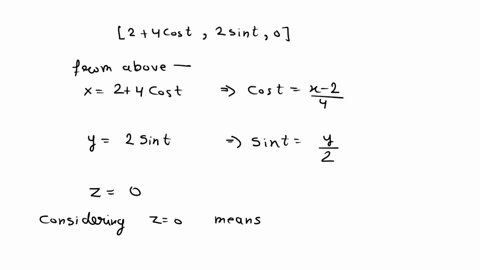 [2+4Cost, 2sint, 0]
from above —
x = 2+4Cost ⇒ Cost = x-2/4
y = 2Sint ⇒ Sint = y/2
z = 0
Considering z=0 means